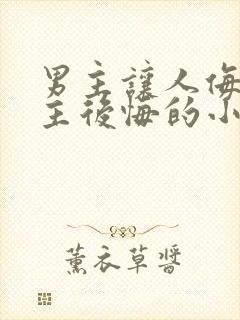 男主讓人侮
主後悔的小
薰衣草醬